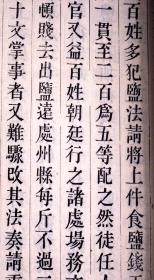 百姓多犯鹽法請將上件食鹽錢
一貫至二百為五等配之然徒任人
官又益百姓朝廷行之諸處塲務
頓賤去出鹽逺處州縣每斤不過
十文掌事者又難驟改其法奏請重